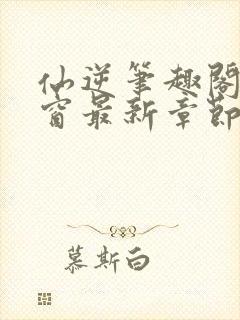 仙逆笔趣阁
窗最新章節
慕斯白